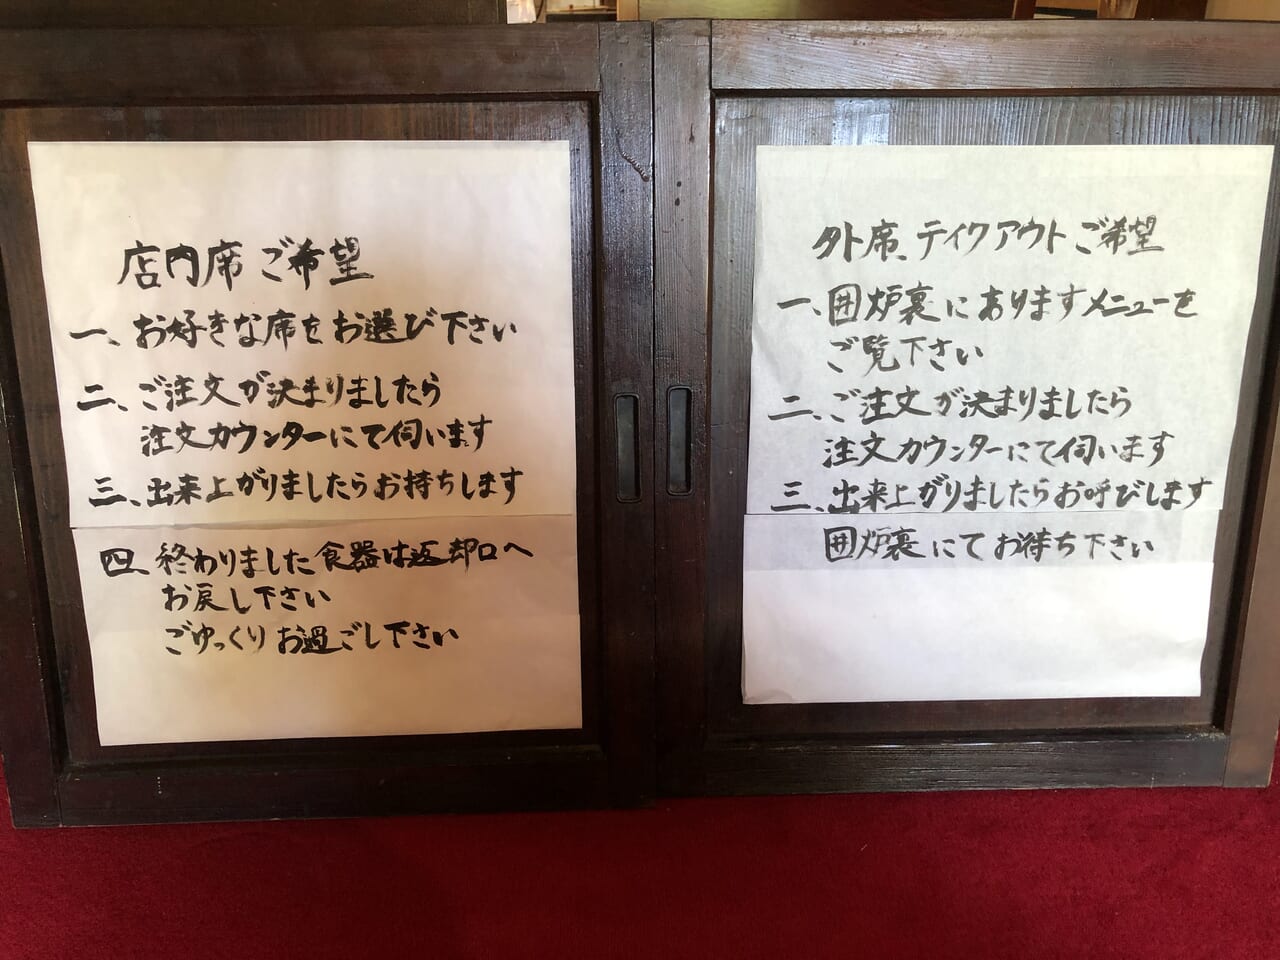 店内席ご希望
一、お好きな席をお選び下さい
二、ご注文が決まりましたら
注文カウンターにて伺います
三、出来上がりましたらお持ちします
四、終わりました食器は返却口へ
お戻し下さい
ごゆっくりお過ごし下さい
外席、テイクアウトご希望
一、囲炉裏にありますメニューを
ご覧下さい
二、ご注文が決まりましたら
注文カウンターにて伺います
三、出来上がりましたらお呼びします
囲炉裏にてお待ち下さい